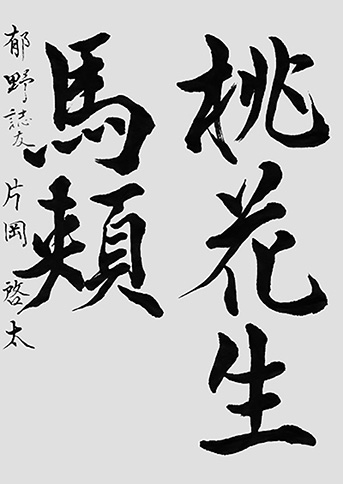 桃花生
馬頬
郁野誌友 片岡啓太